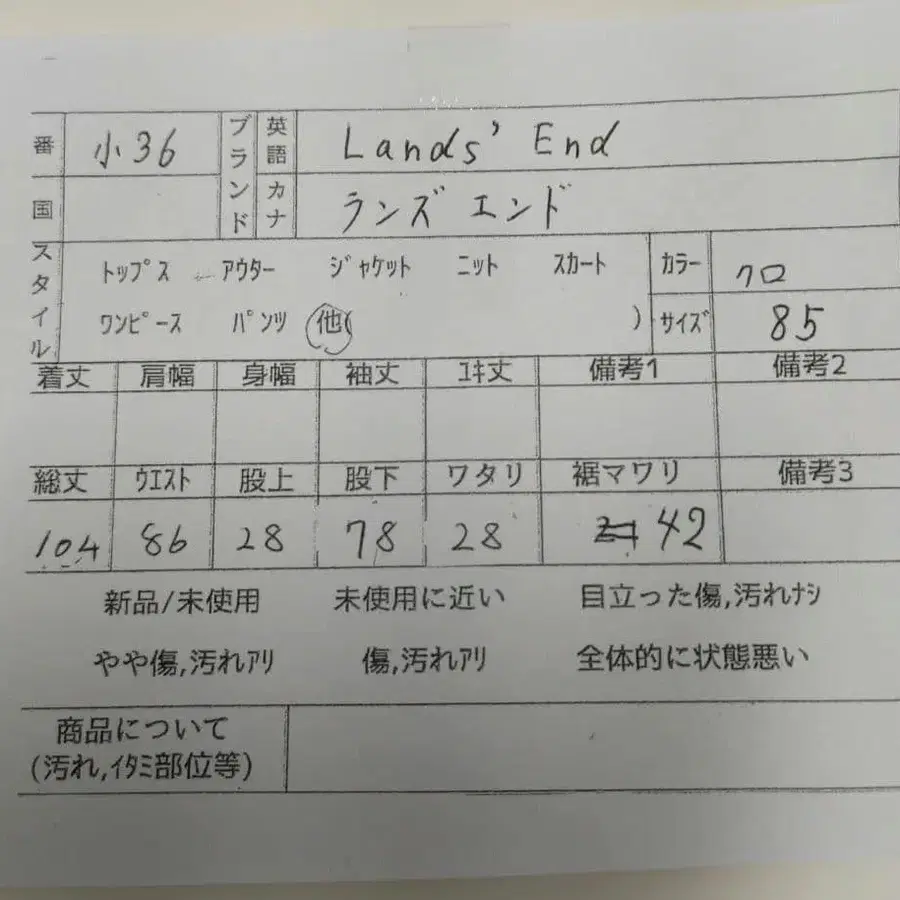 番 小36 ブランド 英語 Lands' End
国 カナ ランズ エンド
スタイル トップス アウター ジャケット ニット スカート カラー クロ
ワンピース パンツ 他( ) サイズ 85
着丈 肩幅 身幅 袖丈 ユキ丈 備考1 備考2
総丈 ウエスト 股上 股下 ワタリ 裾マワリ 備考3
104 86 28 78 28 42
新品/未使用 未使用に近い 目立った傷,汚れナシ
やや傷,汚れアリ 傷,汚れアリ 全体的に状態悪い
商品について
(汚れ,イタミ部位等)